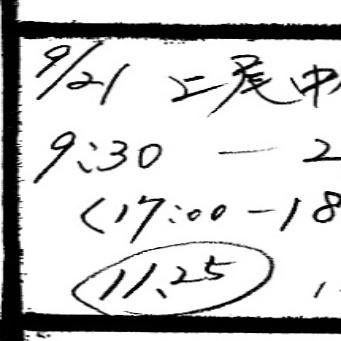 9/21 上尾中
9:30 — 2
(17:00-18
11.25